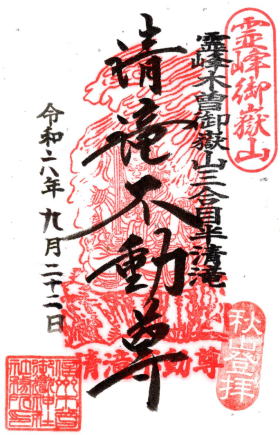 霊峰御嶽山
霊峰木曽御嶽山三合目半清滝
清滝不動尊
令和六年九月二十二日
秋山登拝
清滝不動尊